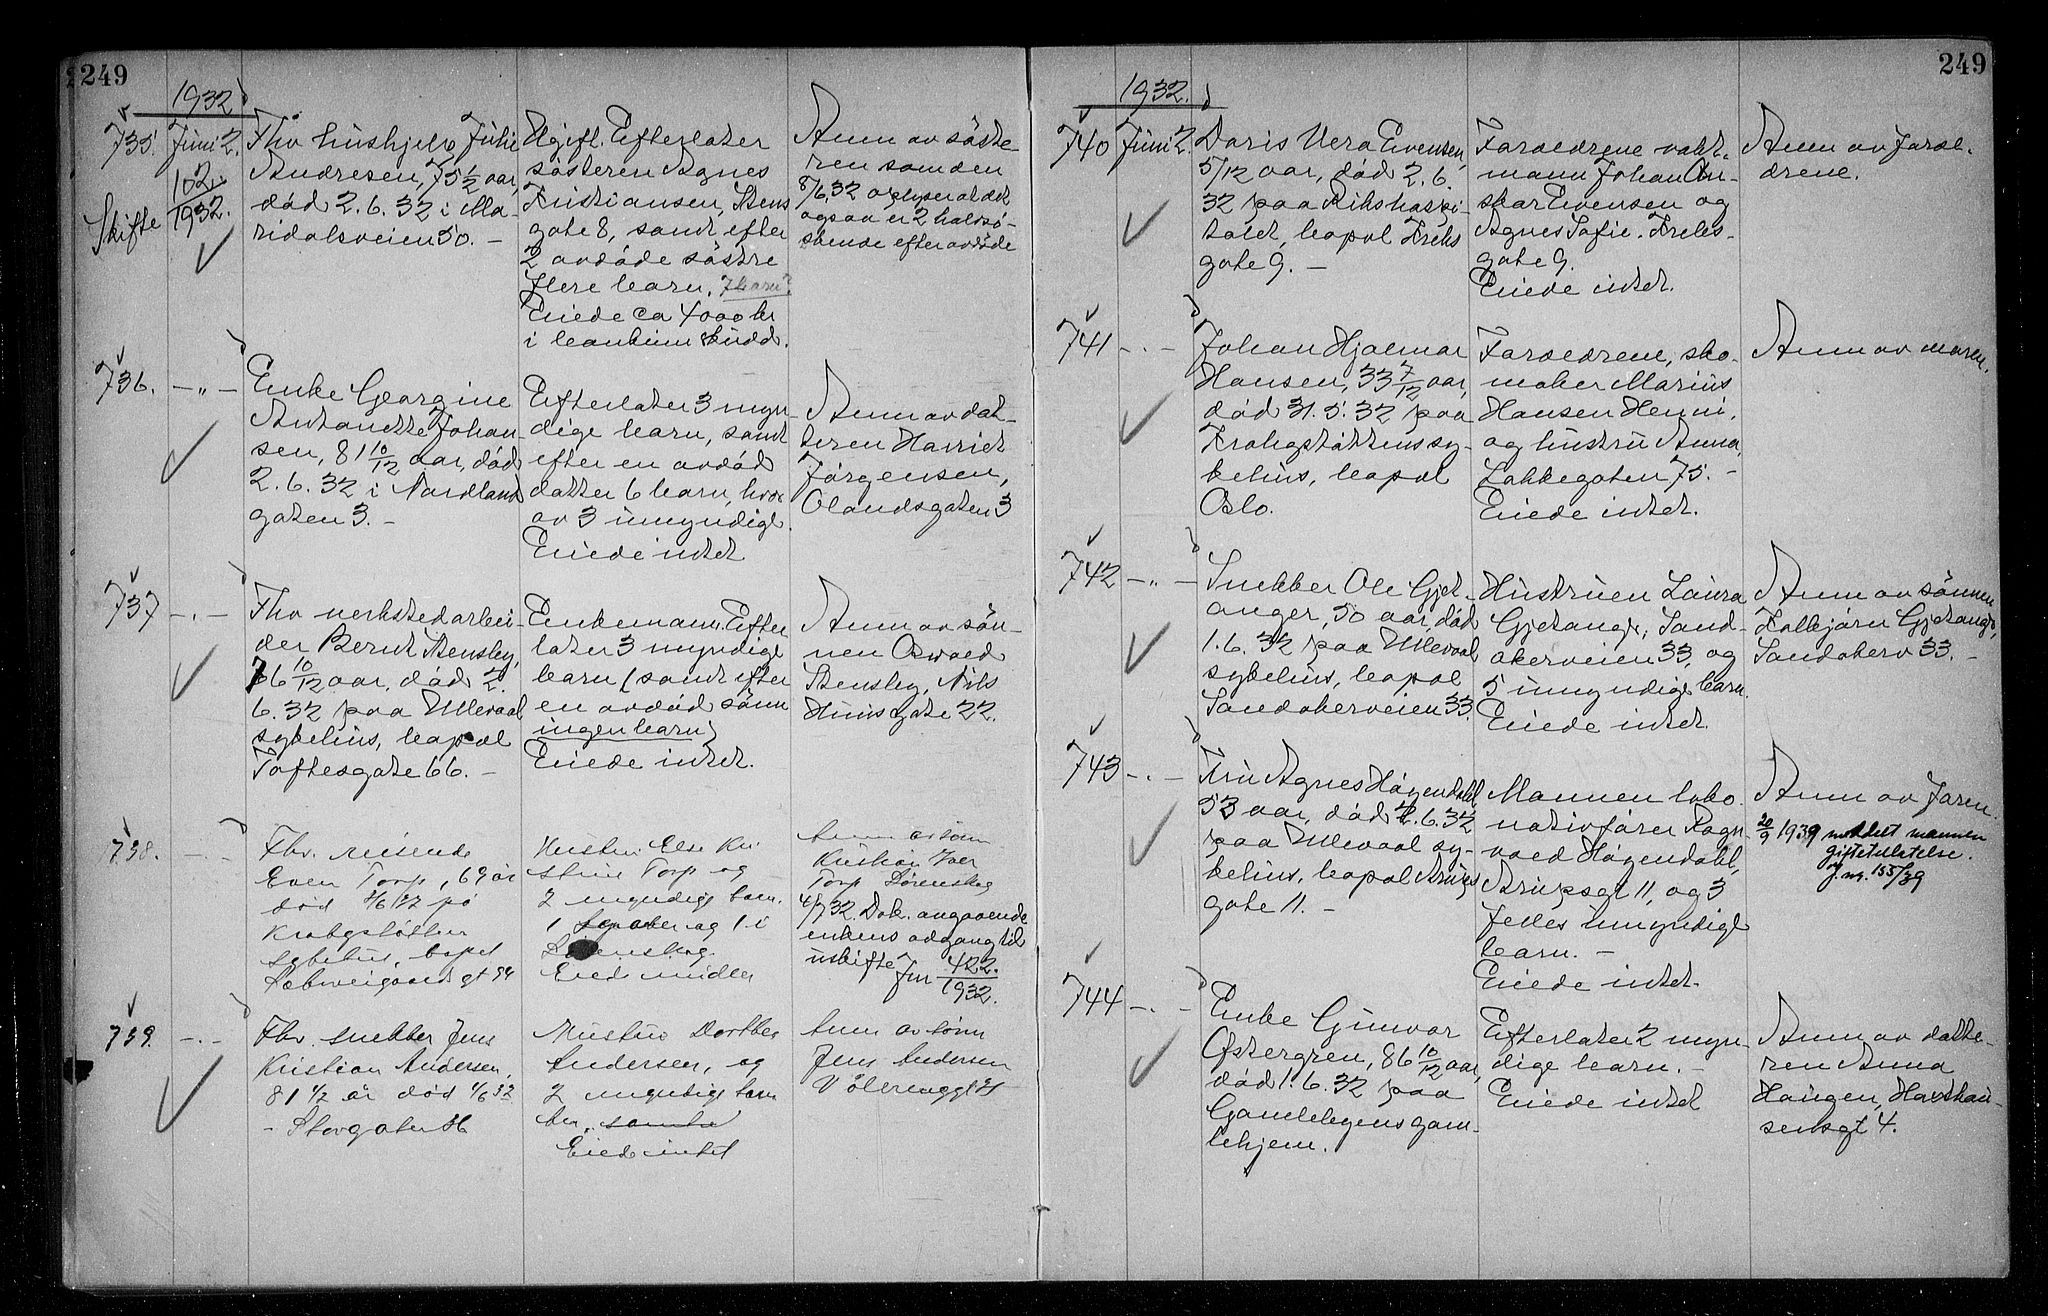 249
1932
735. Juni 2.
102
1932.
Skifte
Fhv hushjelp Julie
Andresen, 75 1/2 aar,
död 2.6.32 i Ma-
ridalsveien 50. -
Ugift. Efterlater
søsteren Agnes
Kristiansen, Stens
gate 8, samt efter
2 avdöde söstre
flere barn. 7 barn?
Eiede ca 4000 kr
i bankinnskudd.
Anm av söste-
ren som den
8/6.32 oplyser at det
ogsaa er 2 halvsö-
skende efter avdöde
736. - " -
Enke Georgine
Antonette Johan-
sen, 81 10/12 aar, död
2.6.32 i Nordland
gaten 3. -
Efterlater 3 myn-
dige barn, samt
efter en avdöd
datter 6 barn, hvor
av 3 umyndige.
Eiede intet
Anm av dat-
teren Harriet
Jörgensen,
Olandsgaten 3
737 - " -
Fhv verkstedarbei-
der Bernt Stensby,
76 10/12 aar, död 2.
6.32 paa Ullevaal
sykehus, bopel
Toftesgate 66. -
Enkemann. Efter
later 3 myndige
barn (samt efter
en avdöd sönn
ingen barn)
Eiede intet.
Anm av sön-
nen Osvald
Stensby, Nils
Huus gate 22.
738. - " -
Fhv. reisende
Even Torp, 69 år
död 2/6 32 på
Krohgstøtten
sykehus, bopel
Løvenskiolds gt
Hustru Else Kri
stine Torp og
2 myndige barn.
1 og 1 i
Lørenskog.
Eied midler
Anm av sønn
Kristian Iver
Torp Lørenskog
4/7 32. Dok. angaaende
enkens adgang til
uskifte Jnr 422.
1932.
739. - " -
Fhv. snekker Jens
Kristian Andersen,
81 1/2 år död 1/6 32
- Storgaten 36
Hustru Dorthea
Andersen, og
2 myndige barn
her. samtu
Eied intet
Anm av sønn
Jens Andersen
Vålerenggt
249
1932.
740 Juni 2.
Doris Vera Evensen,
5/12 aar, död 2.6.
32 paa Rikshospi-
talet, bopel Freks
gate 9. -
Foreldrene vakt-
mann Johan On-
skar Evensen og
Agnes Sofie. Freks-
gate 9.
Eiede intet.
Anm av forel-
drene.
741 - " -
Johan Hjalmar
Hansen, 33 7/12 aar,
död 31.5.32 paa
Krohgstöttens sy-
kehus, bopel
Oslo.
Foreldrene, sko-
maker Marius
Hansen Henni,
og hustru Anna,
Lakkegaten 75. -
Eiede intet.
Anm av moren.
742 - " -
Snekker Ole Gjet-
anger, 50 aar, död
1.6.32 paa Ullevaal
sykehus, bopel
Sandakerveien 33.
Hustruen Laura
Gjetanger, Sand-
akerveien 33, og
5 umyndige barn.
Eiede intet.
Anm av sönnen
Torbjörn Gjetanger,
Sandakerv 33. -
743 - " -
Fru Agnes Høgendahl
53 aar, död 2.6.32
paa Ullevaal sy-
kehus, bopel Arups
gate 11. -
Mannen loko-
motivförer Ragn-
vald Høgendahl,
Arupsgt 11, og 3
felles umyndige
barn. -
Eiede intet.
Anm av faren.
20/9 1939 meddelt mannen
giftetillatelse.
J. nr. 155/39
744 - " -
Enke Gunvor
Østergren, 86 10/12 aar,
död 1.6.32 paa
Gamlebyens gam-
lehjem.
Efterlater 2 myn-
dige barn. -
Eiede intet
Anm av datte-
ren Anna
Haugen, Haxthau-
sensgt 4.